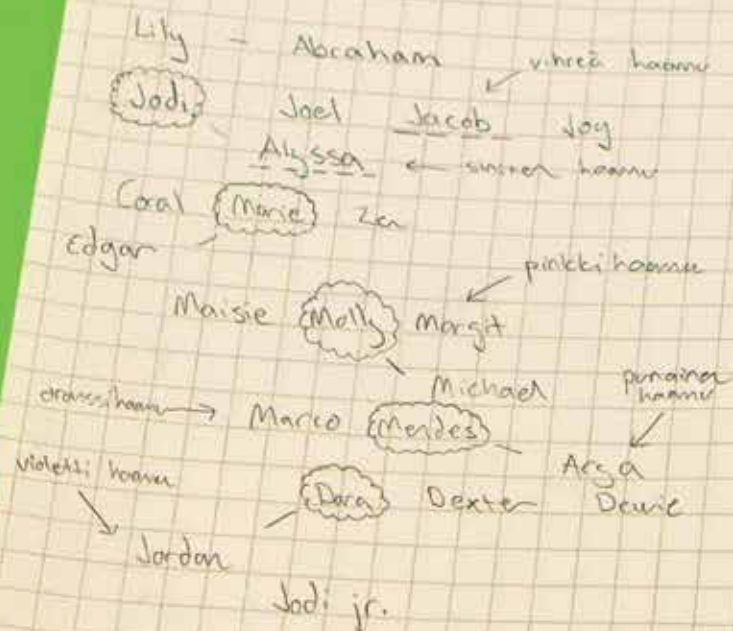 Lily - Abraham
vihreä haamu
Jodi Joel Jacob Joy
Alyssa ← sininen haamu
Coral Marie Zen
Edgar
pinkki haamu
Maisie Molly Margit
Michael
punainen haamu
oranssi haamu → Marco Mendes
Arga
violetti haamu
Dora Dexter Dewie
Jordan
Jodi jr.